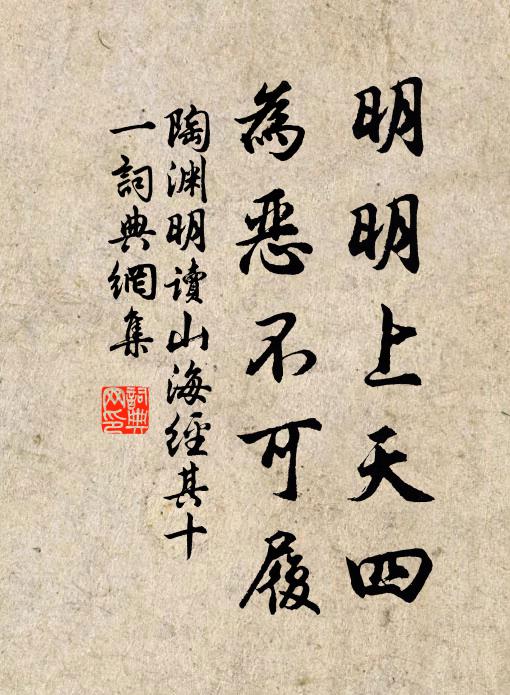 明明上天四
為惡不可履
陶渊明讀山海經其十
一詞典網集
詞典
网印